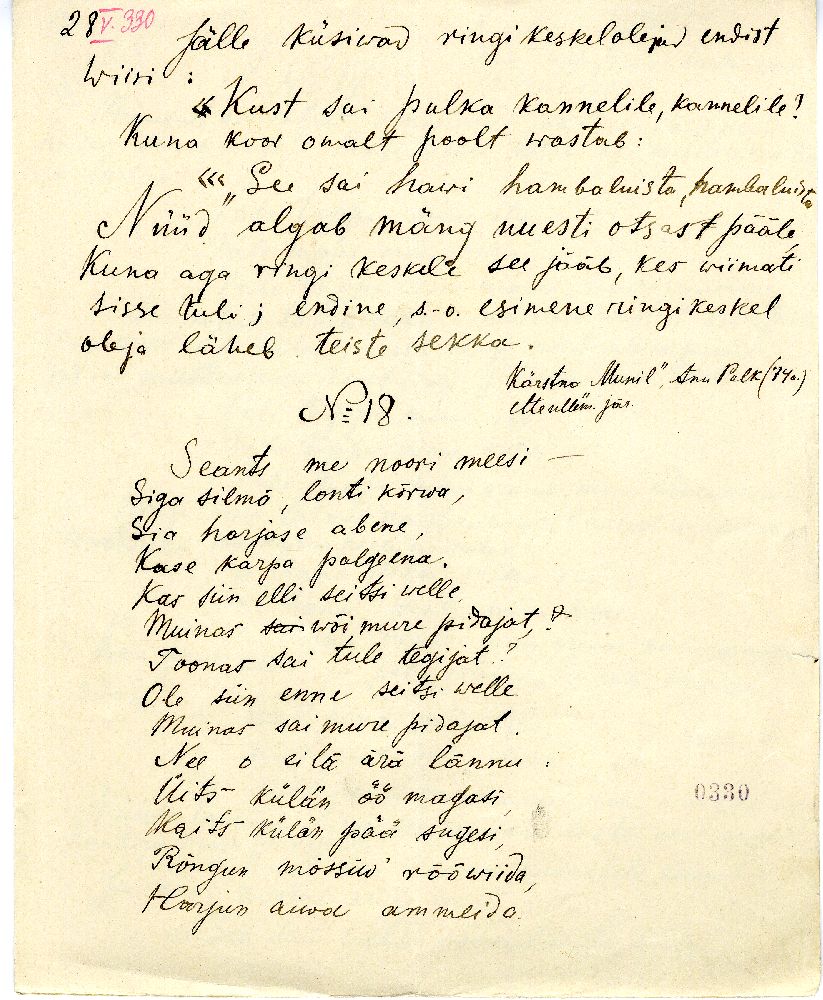 28 V. 330
Jälle küsiwad ringi keskelolejad endist
wiisi :
« Kust sai pulka kannelile, kannelile?
Kuna koor omalt poolt wastab:
‹‹‹ „See sai hawi hambaluista, hambaluista
Nüüd algab mäng uuesti otsast pääle,
Kuna aga ringi keskele see jääb, kes wiimati
sisse tuli; endine, s.-o. esimene ringi keskel
oleja läheb teiste sekka.
Kärstna „Munil", Ann Palk (74a.)
jär.
№ 18.
Seants me noori meesi —
Siga silmä, lonti kõrwa,
Sia harjase abene,
Kase karpa palgeena.
Kas siin elli seitsi welle,
Muinas wõi mure pidajat,?
Toonas sai tule tegijat?
Ole siin enne seitsi welle
Muinas sai mure pidajat.
Nee o eilä ärä lännu :
Üits külän öö magasi,
Kaits külän pää sugesi,
Rõngun mõssiw rõõwiida,
Harjun aiwa ammeida.
0330